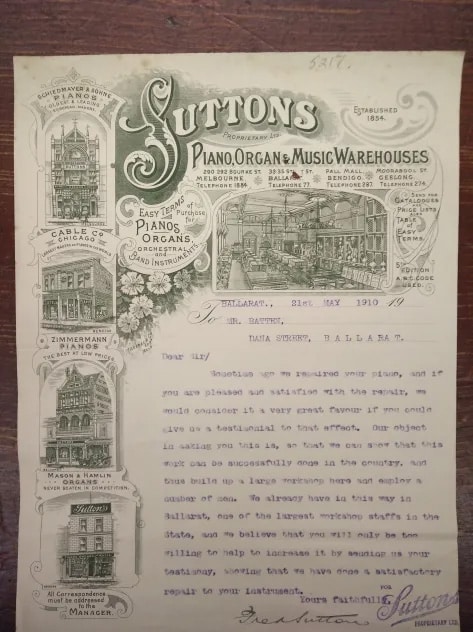 5217.
SCHIEDMAYER & SOHNE
PIANOS
OLDEST & LEADING
SUTTONS
PROPRIETARY LTD.
ESTABLISHED
1854.
PIANO, ORGAN & MUSIC WAREHOUSES
290 292 BOURKE ST.
MELBOURNE.
TELEPHONE 1884.
33 35 ST.
BALLARAT
TELEPHONE 77.
PALL MALL
BENDIGO.
TELEPHONE 287.
MOORABOOL ST
GEELONG.
TELEPHONE 274.
EASY TERMS
of Purchase
for
PIANOS
ORGANS,
ORCHESTRAL
and
BAND INSTRUMENTS.
SEND FOR
CATALOGUES
AND
PRICE LISTS
ALSO
TABLE
OF
EASY
TERMS
5TH EDITION
A.B.C. CODE
USED.
CABLE CO
CHICAGO
BENDIGO
ZIMMERMANN
PIANOS
THE BEST AT LOW PRICES
MASON & HAMLIN
ORGANS
NEVER BEATEN IN COMPETITION.
Sutton's
All Correspondence
must be addressed
to the
MANAGER.
BALLARAT., 21st MAY 1910 19
To MR. BATTEN,
DANA STREET, BALLARAT.
Dear Sir/
Sometime ago we repaired your piano, and if
you are pleased and satisfied with the repair, we
would consider it a very great favour if you could
give us a testimonial to that effect. Our object
in asking you this is, so that we can show that this
work can be successfully done in the country, and
thus build up a large workshop here and employ a
number of men. We already have in this way in
Ballarat, one of the largest workshop staffs in the
State, and we believe that you will only be too
willing to help to increase it by sending us your
testimony, showing that we have done a satisfactory
repair to your instrument.
Yours faithfully,
FOR
Suttons
PROPRIETARY LTD.
Fred Sutton